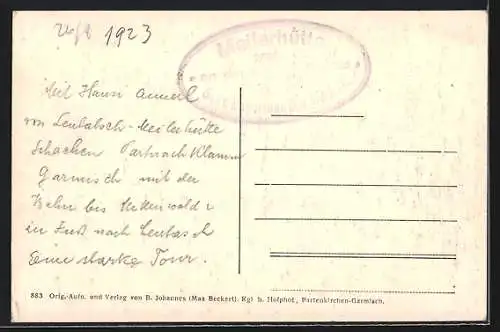 26/8 1923
Meilerhütte
Mit Hansi
von Leutasch - Meilerhütte
Schachen Partnach Klamm
Garmisch mit der
Bahn bis Mittenwald
in Fuß nach Leutasch
Eine starke Tour.
883 Orig.-Aufn. und Verlag von B. Johannes (Max Beckert), Kgl. b. Hofphot., Partenkirchen-Garmisch.